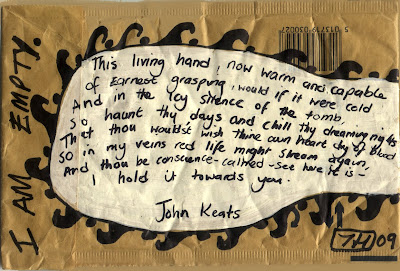 5 015739 030027
This living hand, now warm and capable
of Earnest grasping, would if it were cold
And in the Icy silence of the tomb,
So haunt thy days and chill thy dreaming nights
That thou wouldst wish thine own heart dry of blood
SO in my veins red life might stream again,
And thou be conscience-calmed-see here it is-
I hold it towards you.
John Keats
I AM EMPTY.
TH 09